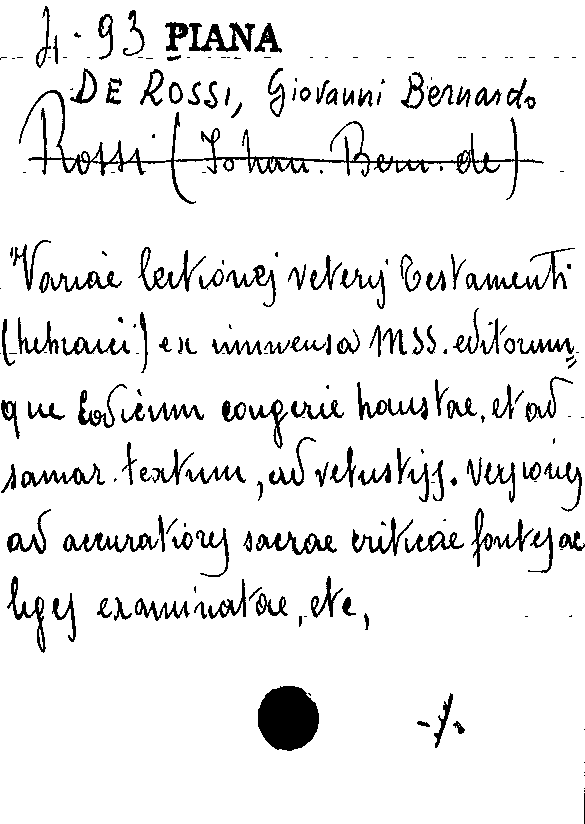 4.93 PIANA
DE ROSSI, Giovanni Bernardo
Rossi (Johan. Bern. de)
"Variae lectiones veteris Testamenti
(hebraici) ex immensa MSS. editorum=
que Codicum congerie haustae, et ad
samar. textum, ad vetustiss. versiones
ad accuratiores sacrae criticae fontes ac
leges examinatae, etc,
-/.